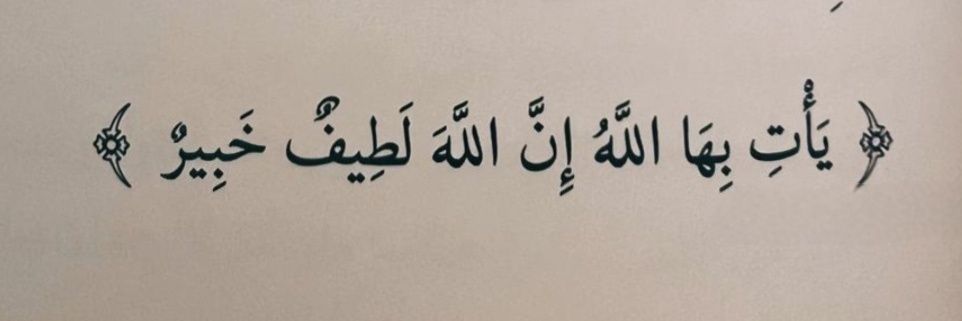 ﴿ يَأْتِ بِهَا اللَّهُ إِنَّ اللَّهَ لَطِيفٌ خَبِيرٌ ﴾